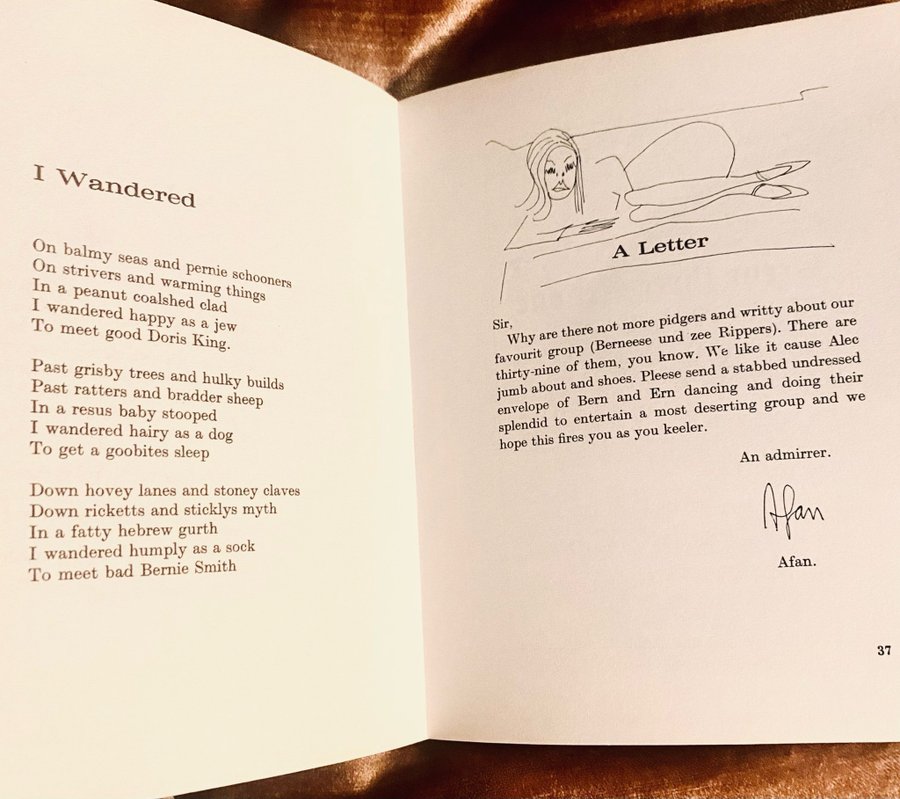 I Wandered
On balmy seas and pernie schooners
On strivers and warming things
In a peanut coalshed clad
I wandered happy as a jew
To meet good Doris King.
Past grisby trees and hulky builds
Past ratters and bradder sheep
In a resus baby stooped
I wandered hairy as a dog
To get a goobites sleep
Down hovey lanes and stoney claves
Down ricketts and sticklys myth
In a fatty hebrew gurth
I wandered humply as a sock
To meet bad Bernie Smith
A Letter
Sir,
Why are there not more pidgers and writty about our
favourit group (Berneese und zee Rippers). There are
thirty-nine of them, you know. We like it cause Alec
jumb about and shoes. Pleese send a stabbed undressed
envelope of Bern and Ern dancing and doing their
splendid to entertain a most deserting group and we
hope this fires you as you keeler.
An admirrer.
Afan
Afan.
37